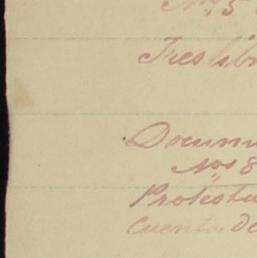 Nº 5
Tres lib
Docum
Nos 8
Protesta
Cuenta de